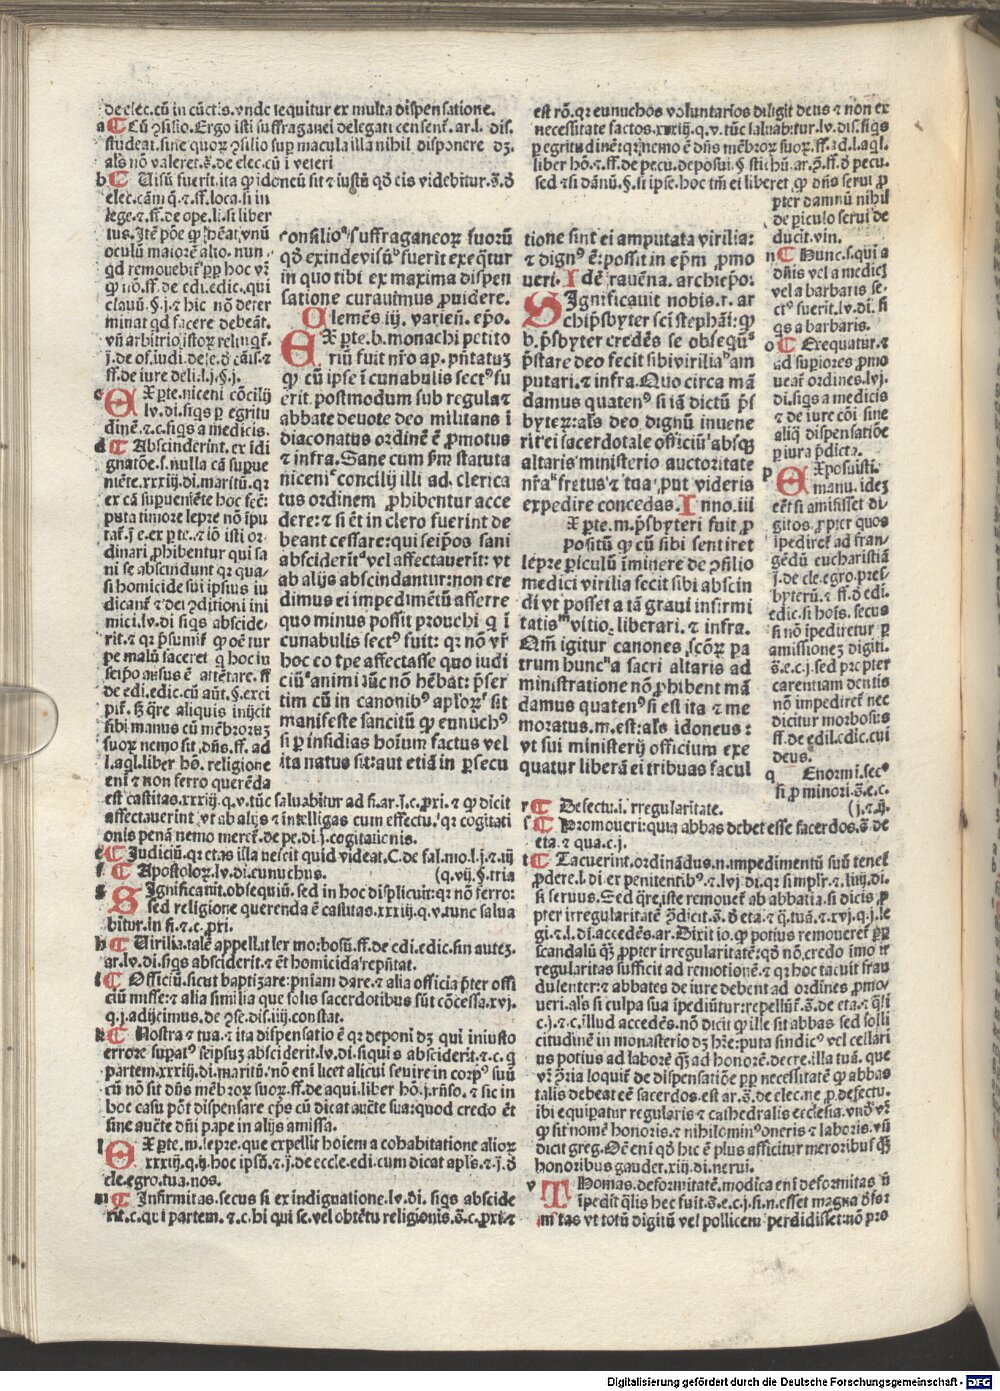 de elec. cū in cūctis. vnde sequitur ex multa dispensatione.
a Cū ꝯsilio. Ergo isti suffraganei delegati censent̄. ar. l. dis.
studeat. sine quoꝝ ꝯsilio sup macula illa nihil disponere dꝫ.
als nō valeret. s̄. de elec. cū i veteri
b Uisū fuerit. ita ꝙ idoneū sit ⁊ iustū qd̄ eis videbitur. s̄. ð
elec. cām q̄. ⁊ .ff. loca. si in
lege. ⁊ ff. de ope. li. si liber
tus. Itē pōe ꝙ hēat vnū
oculū maiorē alio. nun
qd remouebit̄ ꝓp hoc vr̄
ꝙ nō. ff. de edi. edic. qui
clauū. §. j. ⁊ hic nō deter
minat qd facere debeāt.
vn̄ arbitrio istoꝝ relinqt̄.
j. de of. iudi. dele. ð cāis. ⁊
ff. de iure deli. l. j. §. j.
c EX ꝑte. niceni cōcilij
lv. di. siqs ꝑ egritu
dinē. ⁊ c. siqs a medicis.
d Abscinderint. ex īdi
gnatōe. s. nulla cā supue
niēte. xxxiij. di. maritū. qꝛ
ex cā supueniēte hoc fec̄:
puta timore lepre nō īpu
tat̄. j. e. ex ꝑte. ⁊ iō isti or
dinari ꝓhibentur qui sa
ni se abscindunt qꝛ qua
si homicide sui ipsius iu
dicant̄ ⁊ dei ꝯditioni ini
mici. lv. di. siqs abscide
rit. ⁊ qꝛ p̄sumit̄ ꝙ oē tur
pe malū faceret q hoc iu
seipō ausus ē attētare. ff
de edi. edic. cū aūt. §. exci
pit̄. Ꝫ q̄re aliquis inijcit
sibi manus cū mēbroruꝫ
suoꝝ nemo sit dn̄s. ff. ad
l. aql. liber hō. religione
eni ⁊ non ferro querēda
est castitas. xxxiij. q. v. tūc saluabitur ad fi. ar. j. c. ꝓxi. ⁊ ꝙ dicit
affectauerint vt ab alijs ⁊ intelligas cum effectu. qꝛ cogitati
onis penā nemo meret̄. de pe. di. j. cogitationis.
e Iudiciū. qꝛ etas illa nescit quid videat. C. de fal. mo. l. j. ⁊ iij
f Apostoloꝝ. lv. di. eunuchus. (q. vij. §. tria
g SIgnificauit. obsequiū. sed in hoc displicuit: qꝛ nō ferro:
sed religione querenda ē castitas. xxxiij. q. v. tunc salua
bitur. in fi. ⁊ c. ꝓxi.
h Uirilia. talē appellat lex morbosū. ff. de edi. edic. sin auteꝫ.
ar. lv. di. siqs absciderit. ⁊ ēt homicida reputat.
i Officiū. sicut baptizare: pniam dare. ⁊ alia officia p̄ter offi
ciū misse: ⁊ alia similia que solis sacerdotibus sūt cōcessa. xvj.
q. j. adijcimus. de ꝯse. dis. iiij. constat.
k Nostra ⁊ tua. ⁊ ita dispensatio ē qꝛ deponi dꝫ qui iniusto
errore supat⁹ seipsuꝫ absciderit. lv. di. siquis absciderit. ⁊ c. q
partem. xxxiij. di. maritū. nō eni licet alicui seuire in corp⁹ suū
cū nō sit dn̄s mēbroꝝ suoꝝ. ff. de aqui. liber hō. j. rn̄so. ⁊ sic in
hoc casu pōt dispensare ep̄s cū dicat aucte sua: quod credo ēt
sine aucte dn̄i pape in alijs amissa.
l EX ꝑte. m. lepre. que expellit hoiem a cohabitatione alioꝝ
xxxiij. q. ij. hoc ipsū. ⁊ j. de eccle. edi. cum dicat apls. ⁊ j. ð
cle. egro. tua. nos.
m Infirmitas. secus si ex indignatione. lv. di. siqs abscide
rit. c. qui partem. ⁊ c. hi qui se. vel obtētu religionis. s̄. c. ꝓxi. ⁊
consilio suffraganeoꝝ suorū
qd̄ exinde visū fuerit exeq̄tur
in quo tibi ex maxima dispen
satione curauimus ꝓuidere.
Clemēs. iij. varien̄. ep̄o.
EX ꝑte. b. monachi petito
riū fuit nr̄o ap. pn̄tatuꝫ
ꝙ cū ipse ī cunabulis sect⁹ fu
erit. postmodum sub regula ⁊
abbate deuote deo militans ī
diaconatus ordinē ē ꝓmotus
⁊ infra. Sane cum ꝑm statuta
niceni concilij illi ad clerica
tus ordinem ꝓhibentur acce
dere: ⁊ si ēt in clero fuerint de
beant cessare: qui seip̄os sani
absciderit vel affectauerit: vt
ab alijs abscindantur: non cre
dimus ei impedimētū afferre
quo minus possit prouehi q ī
cunabulis sect⁹ fuit: qꝛ nō vr̄
hoc eo tpe affectasse quo iudi
ciū animi iūc nō hēbat: p̄ser
tim cū in canonib⁹ apl̄oꝝ sit
manifeste sancitū ꝙ eunuch⁹
si ꝑ insidias hoīum factus vel
ita natus sit: aut etiā in ꝑsecu
est rō. qꝛ eunuchos voluntarios diligit deus ⁊ non ex
necessitate factos. xxxiij. q. v. tūc saluabitur. lv. dis. siqs
ꝑ egritudinē: qꝛ nemo ē dn̄s mēbroꝝ suoꝝ. ff. ad. l. aql.
liber hō. ⁊ ff. de pecu. deposui. § stichū. ar. ꝓ. ff. ð pecu.
sed ⁊ si dānū. §. si ipse. hoc tm̄ ei liberet ꝙ dn̄s serui ꝓ
pter damnū nihil
de piculo serui de
ducit. vin.
tione sint ei amputata virilia:
⁊ dign⁹ ē: possit in ep̄m ꝓmo
ueri. Idē rauēna. archiepo:
SIgnificauit nobis. r. ar
chip̄sbyter sci stephāi: ꝙ
b. p̄sbyter credēs se obsequiū
p̄stare deo fecit sibi virilia am
putari. ⁊ infra. Quo circa mā
damus quaten⁹ si iā dictū p̄s
byteꝝ: als deo dignū inuene
rit ei sacerdotale officiū absꝙ
altaris ministerio auctoritate
nr̄a fretus ⁊ tua put videris
expedire concedas. Inno. iii
EX ꝑte. m. p̄sbyteri fuit ꝓ
positū ꝙ cū sibi sentiret
lepre piculū iminere de ꝯsilio
medici virilia fecit sibi abscin
di vt posset a tā graui infirmi
tatis vitio liberari. ⁊ infra.
Qm̄ igitur canones scōꝝ pa
trum hunc a sacri altaris ad
ministratione nō ꝓhibent mā
damus quaten⁹ si est ita ⁊ me
moratus. m. est: als idoneus:
vt sui ministerij officium exe
quatur liberā ei tribuas facul
n Hunc. s. qui a
dn̄is vel a medicꝭ
vel a barbaris se
ct⁹ fuerit. lv. di. si
qs a barbaris.
o Exequatur. ⁊
ad supiores ꝓmo
ueat̄ ordines. lvj.
di. siqs a medicis
⁊ de iure cōi sine
aliq̄ dispensatiōe
ꝑ iura p̄dicta.
p EXposuisti.
manu. ideꝫ
eēt si amisisset di
gitos ꝓpter quos
īpediret̄ ad fran
gēdū eucharistiā
j. de cle. egro. pres
byterū. ⁊ ff. ð edi.
edic. si hoīs. secus
si nō īpediretur ꝑ
amissioneꝫ digiti.
s̄. e. c. j. sed propter
carentiam dentis
nō impediret̄ nec
dicitur morbosus
ff. de edil. edic. cui
deus.
q Enormi. sec⁹
si ꝓ minori. s̄. e. c.
r Defectu. i. irregularitate. (j. ⁊ ij.
s Promoueri: quia abbas debet esse sacerdos. s̄. de
eta. ⁊ qua. c. j.
t Tacuerint. ordinādus. n. impedimentū suū tenet̄
ꝓdere. l. di ex penitentib⁹. ⁊. lvj di. qꝛ simplr̄. ⁊. liiij. di.
si seruus. Sed q̄re iste remouet̄ ab abbatia. si dicis ꝓ
pter irregularitatē ꝯdicit. s̄. ð eta. ⁊ q̄. tuā. ⁊ xvj. q. j. le
gi. ⁊. l. di. accedēs. ar. Dixit io. ꝙ potius remoueret ꝓp
scandalū q̄ꝫ ꝓpter irregularitatē: qd̄ nō credo imo ir
regularitas sufficit ad remotionē. ⁊ qꝛ hoc tacuit frau
dulenter: ⁊ abbates de iure debent ad ordines ꝓmo
ueri. als si culpa sua īpediūtur: repellūt̄. s̄. de eta. ⁊ q̄li
c. j. ⁊ c. illud accedēs. nō dicit ꝙ ille sit abbas sed solli
citudinē in monasterio dꝫ hr̄e: puta sindic⁹ vel cellari
us potius ad laborē q̄ꝫ ad honorē. decre. illa tuā. que
vr̄ ꝯria loquit̄ de dispensatiōe ꝓp necessitatē ꝙ abbas
talis debeat eē sacerdos. est ar. s̄. de elec. ne ꝓ defectu.
ibi equipatur regularis ⁊ cathedralis ecclesia. vn̄ō vr̄
ꝙ sit nomē honoris. ⁊ nihilomin⁹ oneris ⁊ laboris. vn̄
dicit greg. Oē eni qd̄ hic ē plus afficitur meroribus q̄ꝫ
honoribus gaudet. xiij. di. nerui.
v THomas. deformitatē. modica eni deformitas n̄
īpedit. q̄lis hec fuit. s̄. e. c. j. si. n. esset magna ðfor
mitas vt totū digitū vel pollicem perdidisset: nō pro
Digitalisierung gefördert durch die Deutsche Forschungsgemeinschaft - DFG